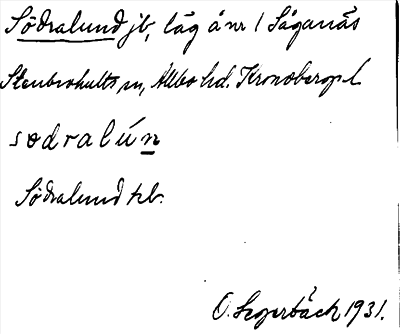 Södralund jb, låg å nr 1 Såganäs
Stenbrohults sn, Allbo hd. Kronobergs l
sødralún
Södralund hb.
O. Segerbäck 1931.